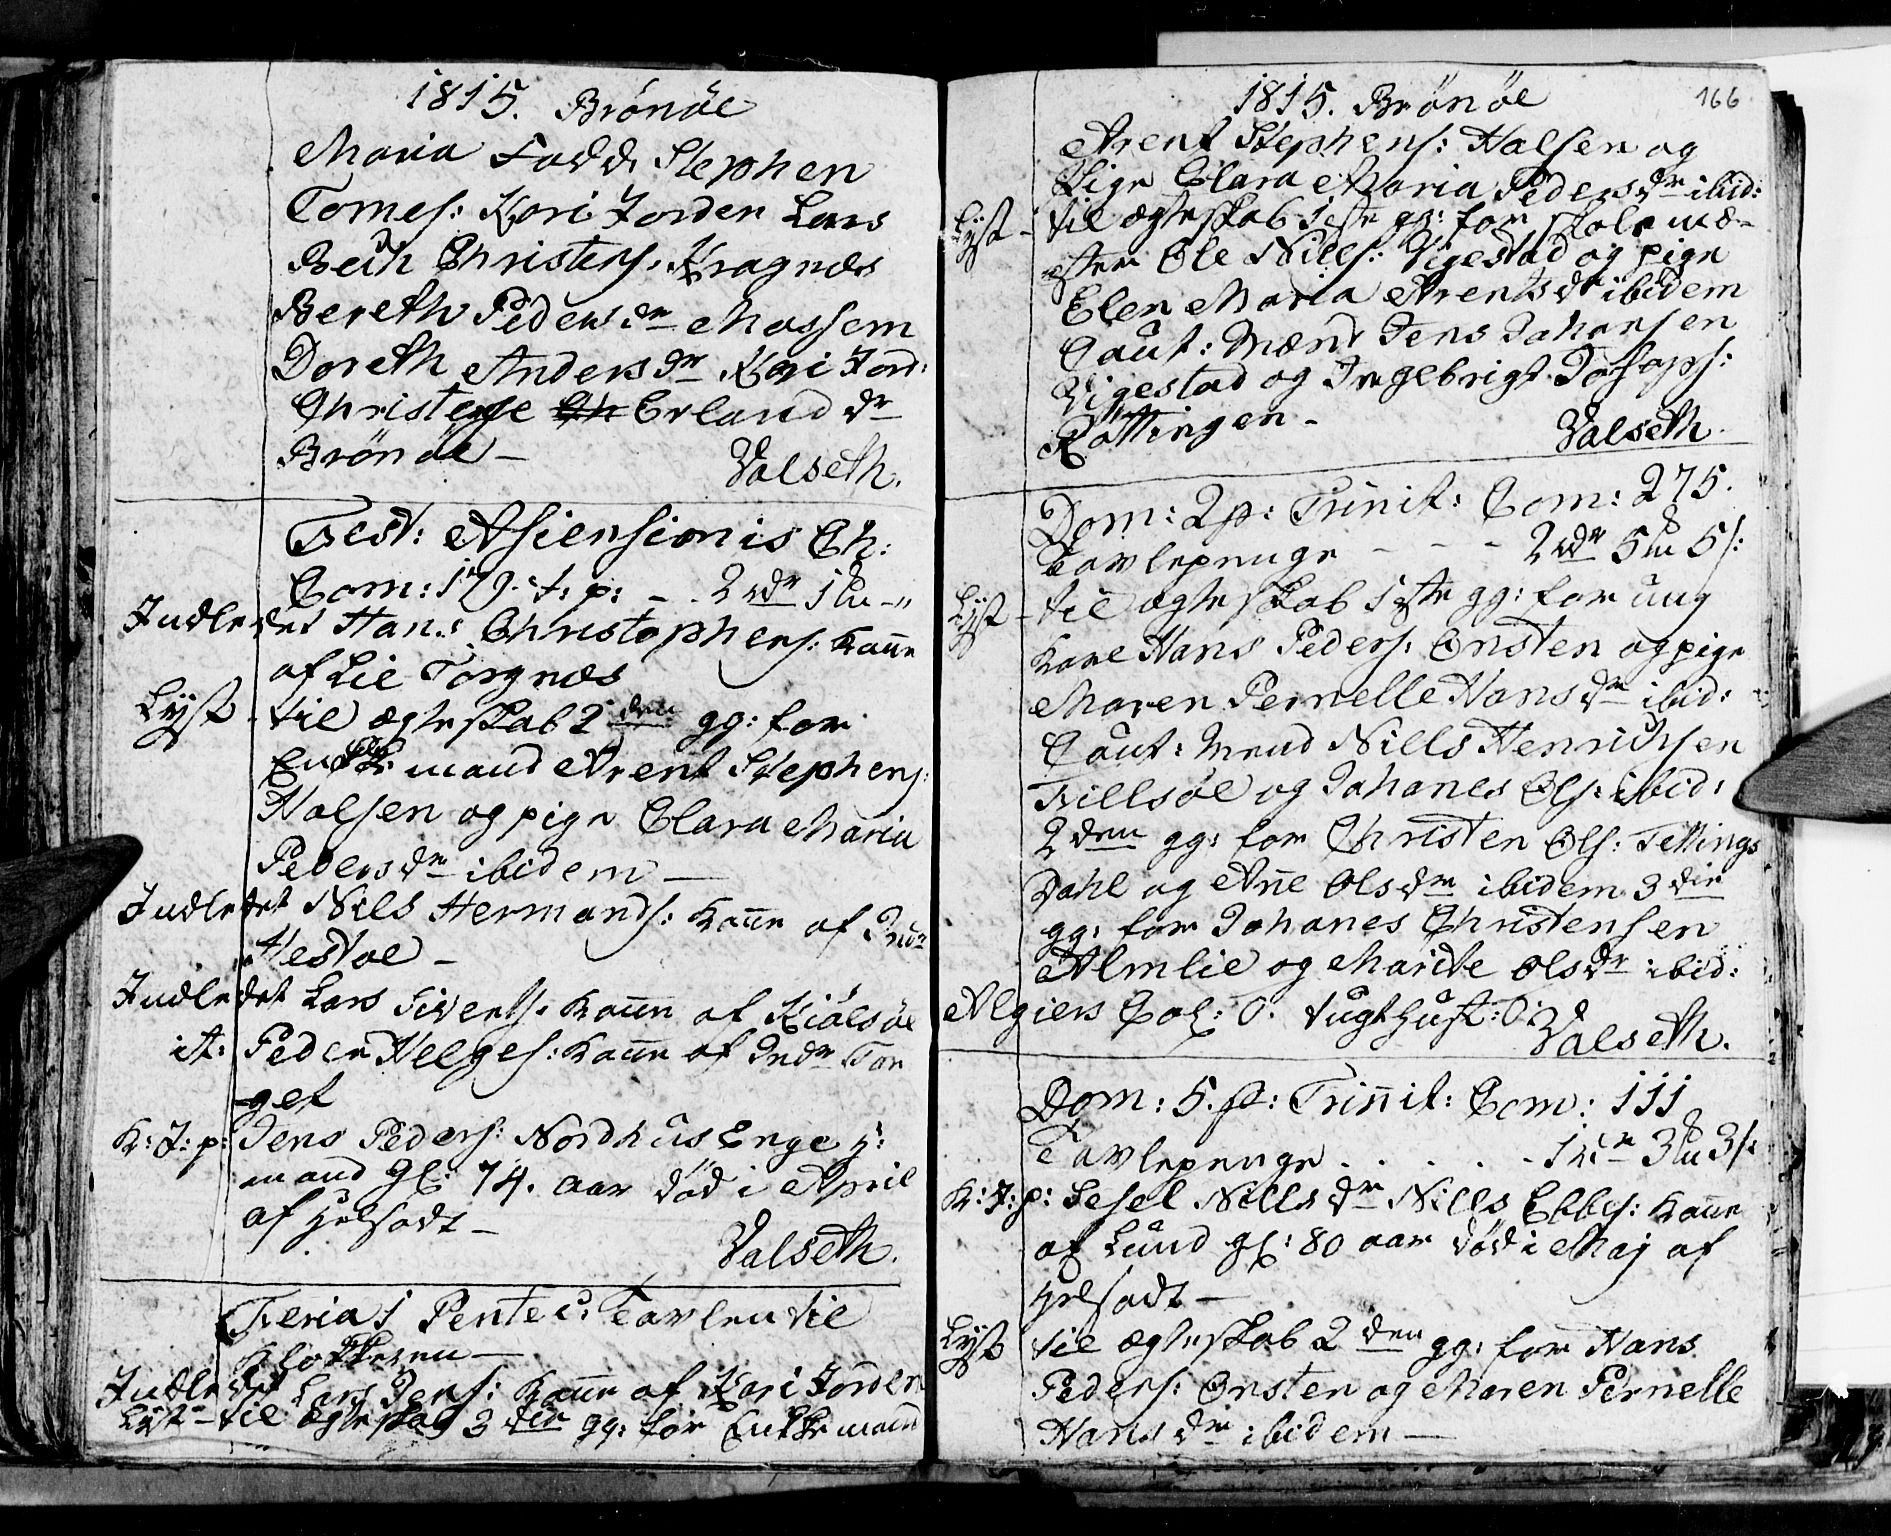 1815. Brönöe
Maria Fadd: Stephen
Tomes: Kari Jorden Lars
Bech Christens: Kragnæs
Bereth Peders dr Mossem
Doreth Anders dr Kari Jord:
Christense Ch Erland dr
Brönöe -
Valseth.
Fest: Asiensionis Ch:
Com: 179. t: p: - . 2 rdr 1 Lu - "
Indledet Hans Christophers: Kone
af Lie Torgnæs
Lyst - til ægteskab 2 den gg: for
Enkemand Arent Stephens:
Halsen og pige Clara Maria
Peders dr ibidem -
Indledet Nils Hermands: Kone af Indr
Vestøe -
Indledet Lars Siverts: Kone af Kiölsöe
it: Peder Helges: Kone af Indr Tor
get
K: J: p: Jens Peders: Nordhus Enge
mand gl: 74. aar död i April
af Helsodt -
Valseth.
Feria 1 Pentec: Tavlen til
Klokkeren -
Indledet Lars Jens: Kone af Kari Jorden
Lyst - til ægteskab 3 die gg: for Enkemand
1815. Brönöe
166
Arent Stephens: Halsen og
Pige Clara Maria Peders dr ibid:
Lyst - til ægteskab 1 ste gg: for skolemæ-
ster Ole Nills: Vigestad og pige
Elen Maria Arents dr ibidem
Caut: Mænd Jens Johansen
Vigestad og Ingebrigt Josops:
Röttingen -
Valseth.
Dom: 2 p: Trinit: Com: 275.
Tavlepenge - - - 2 rdr 5 Lu 5 s:
Lyst - til ægteskab 1 ste gg: for ung
Karl Hans Peders: Onsten og pige
Maren Pernelle Hans dr ibid:
Caut: Mend Nills Henrichsen
Tillsöe og Johanes Ols: ibid:
2 den gg: for Christen Ols: Tettings
Dahl og Ane Ols dr ibidem 3 die
gg: for Johanes Christensen
Almlie og Marite Ols dr ibid:
Algiers Col: 0. tugthust: 0:
Valseth.
Dom: 5. p: Trinit: Com: 111
Tavlepenge . . . . . - 1 rdr 3 Lu 3 s:
K: J: p: Sesel Nills dr Nills Ebbes: Kone
af Lund gl: 80 aar död i Maj af
Helsodt -
Lyst til ægteskab 2 den gg: for Hans
Peders: Onsten og Maren Pernelle
Hans dr ibidem -